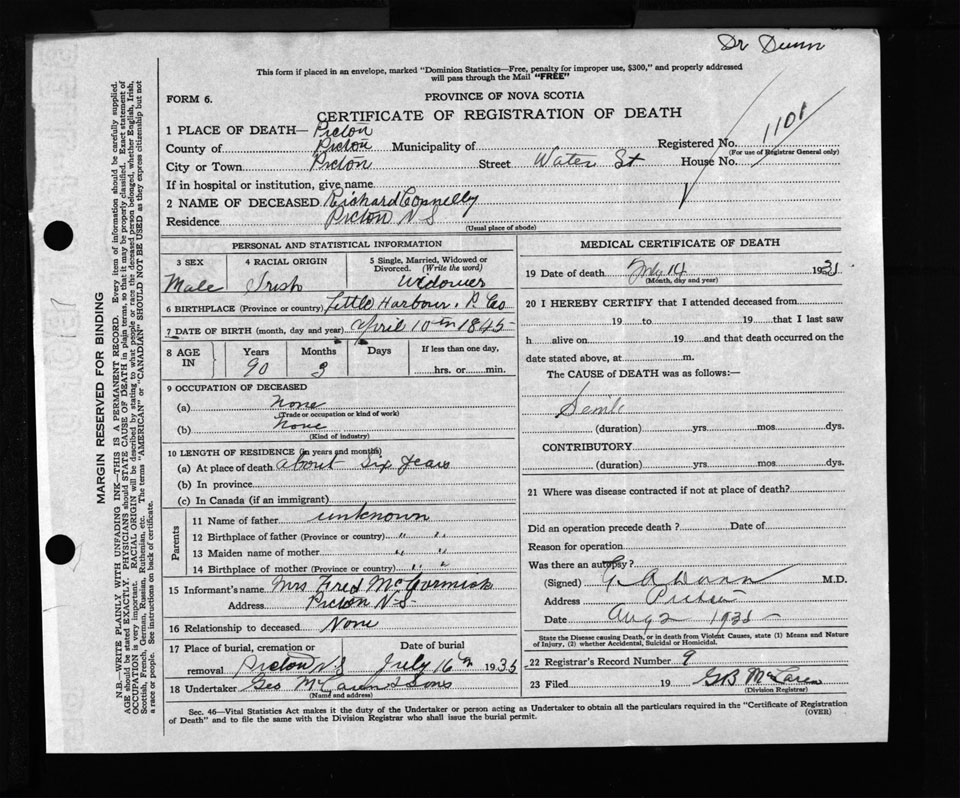 Dr Dunn
This form if placed in an envelope, marked "Dominion Statistics—Free, penalty for improper use, $300," and properly addressed
will pass through the Mail "FREE"
FORM 6.
PROVINCE OF NOVA SCOTIA
CERTIFICATE OF REGISTRATION OF DEATH
1 PLACE OF DEATH— Pictou
County of Pictou Municipality of Registered No. 1101
(For use of Registrar General only)
City or Town Pictou Street Water St House No.
If in hospital or institution, give name
2 NAME OF DECEASED Richard Connelly
Residence Pictou N S
(Usual place of abode)
PERSONAL AND STATISTICAL INFORMATION
3 SEX 4 RACIAL ORIGIN 5 Single, Married, Widowed or
Divorced. (Write the word)
Male Irish Widower
6 BIRTHPLACE (Province or country) Little Harbour. P. Co
7 DATE OF BIRTH (month, day and year) April 10th 1845
8 AGE IN Years Months Days If less than one day,
90 3 hrs. or min.
9 OCCUPATION OF DECEASED
(a) None
(Trade or occupation or kind of work)
(b) None
(Kind of industry)
10 LENGTH OF RESIDENCE (in years and months)
(a) At place of death about Six Years
(b) In province
(c) In Canada (if an immigrant)
Parents
11 Name of father unknown
12 Birthplace of father (Province or country) " "
13 Maiden name of mother " "
14 Birthplace of mother (Province or country) " "
15 Informant's name Mrs Fred McCormick
Address Pictou N-S-
16 Relationship to deceased None
17 Place of burial, cremation or Date of burial
removal Pictou N S July 16th 1935
18 Undertaker Geo McLaren & Sons
(Name and address)
MEDICAL CERTIFICATE OF DEATH
19 Date of death July 14 193
(Month, day and year)
20 I HEREBY CERTIFY that I attended deceased from
19 to 19 that I last saw
h alive on 19 and that death occurred on the
date stated above, at m.
The CAUSE of DEATH was as follows:—
(duration) yrs. mos. dys.
CONTRIBUTORY
(duration) yrs. mos. dys.
21 Where was disease contracted if not at place of death?
Did an operation precede death? Date of
Reason for operation
Was there an autopsy?
(Signed) G A Dunn M.D.
Address Pictou
Date Aug 2 1935
State the Disease causing Death, or in death from Violent Causes, state (1) Means and Nature
of Injury, (2) whether Accidental, Suicidal or Homicidal.
22 Registrar's Record Number 9
23 Filed 19 G B McLaren
(Division Registrar)
Sec. 46—Vital Statistics Act makes it the duty of the Undertaker or person acting as Undertaker to obtain all the particulars required in the "Certificate of Registration
of Death" and to file the same with the Division Registrar who shall issue the burial permit. (OVER)
MARGIN RESERVED FOR BINDING
N.B.—WRITE PLAINLY WITH UNFADING INK—THIS IS A PERMANENT RECORD. Every item of information should be carefully supplied.
AGE should be stated EXACTLY. PHYSICIANS should STATE CAUSE OF DEATH in plain terms, so that it may be properly classified. Exact statement of
OCCUPATION is very important. RACIAL ORIGIN will be described by stating to what people or race the deceased person belonged, whether English, Irish,
Scottish, French, German, Russian, Ruthenian, etc. The terms "AMERICAN" or "CANADIAN" SHOULD NOT BE USED as they express citizenship but not
a race or people. See instructions on back of certificate.